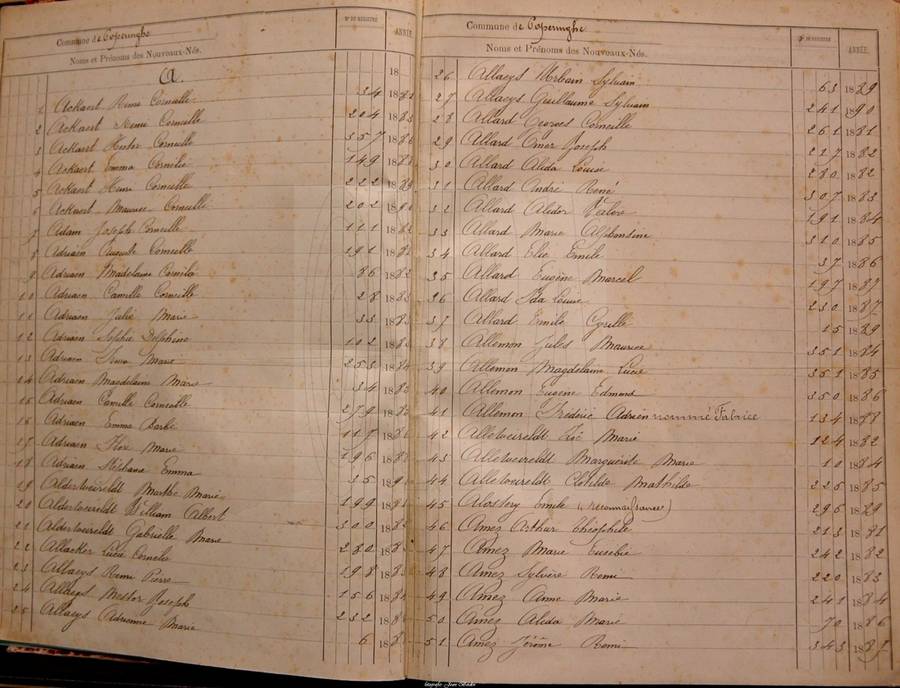 Commune de Poperinghe
Nº DU REGISTRE
ANNÉE
Noms et Prénoms des Nouveaux-Nés.
A.
18
1 Ackaert Remi Corneille 34 188
2 Ackaert Remi Corneille 204 188
3 Ackaert Hector Corneille 357 188
4 Ackaert Emma Cornélie 149 188
5 Ackaert Henri Corneille 222 188
6 Ackaert Maurice Corneille 202 18
7 Adam Joseph Corneille 111 188
8 Adriaen Auguste Corneille 191 188
9 Adriaen Madelaine Cornélie 86 188
10 Adriaen Camille Corneille 28 188
11 Adriaen Julie Marie 33 188
12 Adriaen Sophie Delphine 102 188
13 Adriaen Marie 253 188
14 Adriaen Magdelaine Marie 34 188
15 Adriaen Camille Corneille 279 188
16 Adriaen Emma Barbe 117 188
17 Adriaen Marie 196 188
18 Adriaen Stéphanie Emma 35 189
19 Alderweireldt Marthe Marie 199 188
20 Alderweireldt William Albert 300 188
21 Alderweireldt Gabrielle Marie 280 188
22 Allacker Lucie Cornelie 198 188
23 Allaeys Remi Pierre 156 188
24 Allaeys Nestor Joseph 232 188
25 Allaeys Adrienne Marie 6 188
Commune de Poperinghe
Nº DU REGISTRE
ANNÉE
Noms et Prénoms des Nouveaux-Nés.
26 Allaeys Urbain Sylvain 63 1889
27 Allaeys Guillaume Sylvain 241 1890
28 Allard Georges Corneille 261 1881
29 Allard Omer Joseph 217 1882
30 Allard Alida Louise 280 1882
31 Allard André René 307 1883
32 Allard Alidor Valère 191 1884
33 Allard Marie Alphonsine 310 1885
34 Allard Elie Emile 37 1886
35 Allard Eugène Marcel 197 1887
36 Allard Ida Louise 230 1887
37 Allard Emile Cyrille 15 1889
38 Allemon Jules Maurice 351 1884
39 Allemon Magdelaine Lucie 351 1885
40 Allemon Eugène Edmond 350 1886
41 Allemon Fréderic Adrien nommé Fabrice 134 1888
42 Alleweireldt Zoé Marie 124 1882
43 Alleweireldt Marguerite Marie 10 1884
44 Alleweireldt Clotilde Mathilde 225 1885
45 Alostery Emile (reconnaissance) 296 1889
46 Amez Arthur Théophile 213 1881
47 Amez Marie Eusebie 242 1882
48 Amez Sylvère Remi 220 1883
49 Amez Anne Marie 241 1884
50 Amez Alida Marie 70 1886
51 Amez Jérôme Remi 343 1887